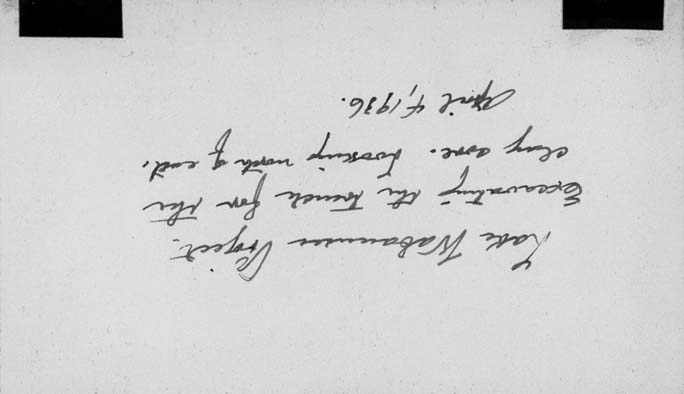 Lake Wabaunsee Project.
Excavating the trench for the
clay core. Looking north of east.
April 4, 1936.